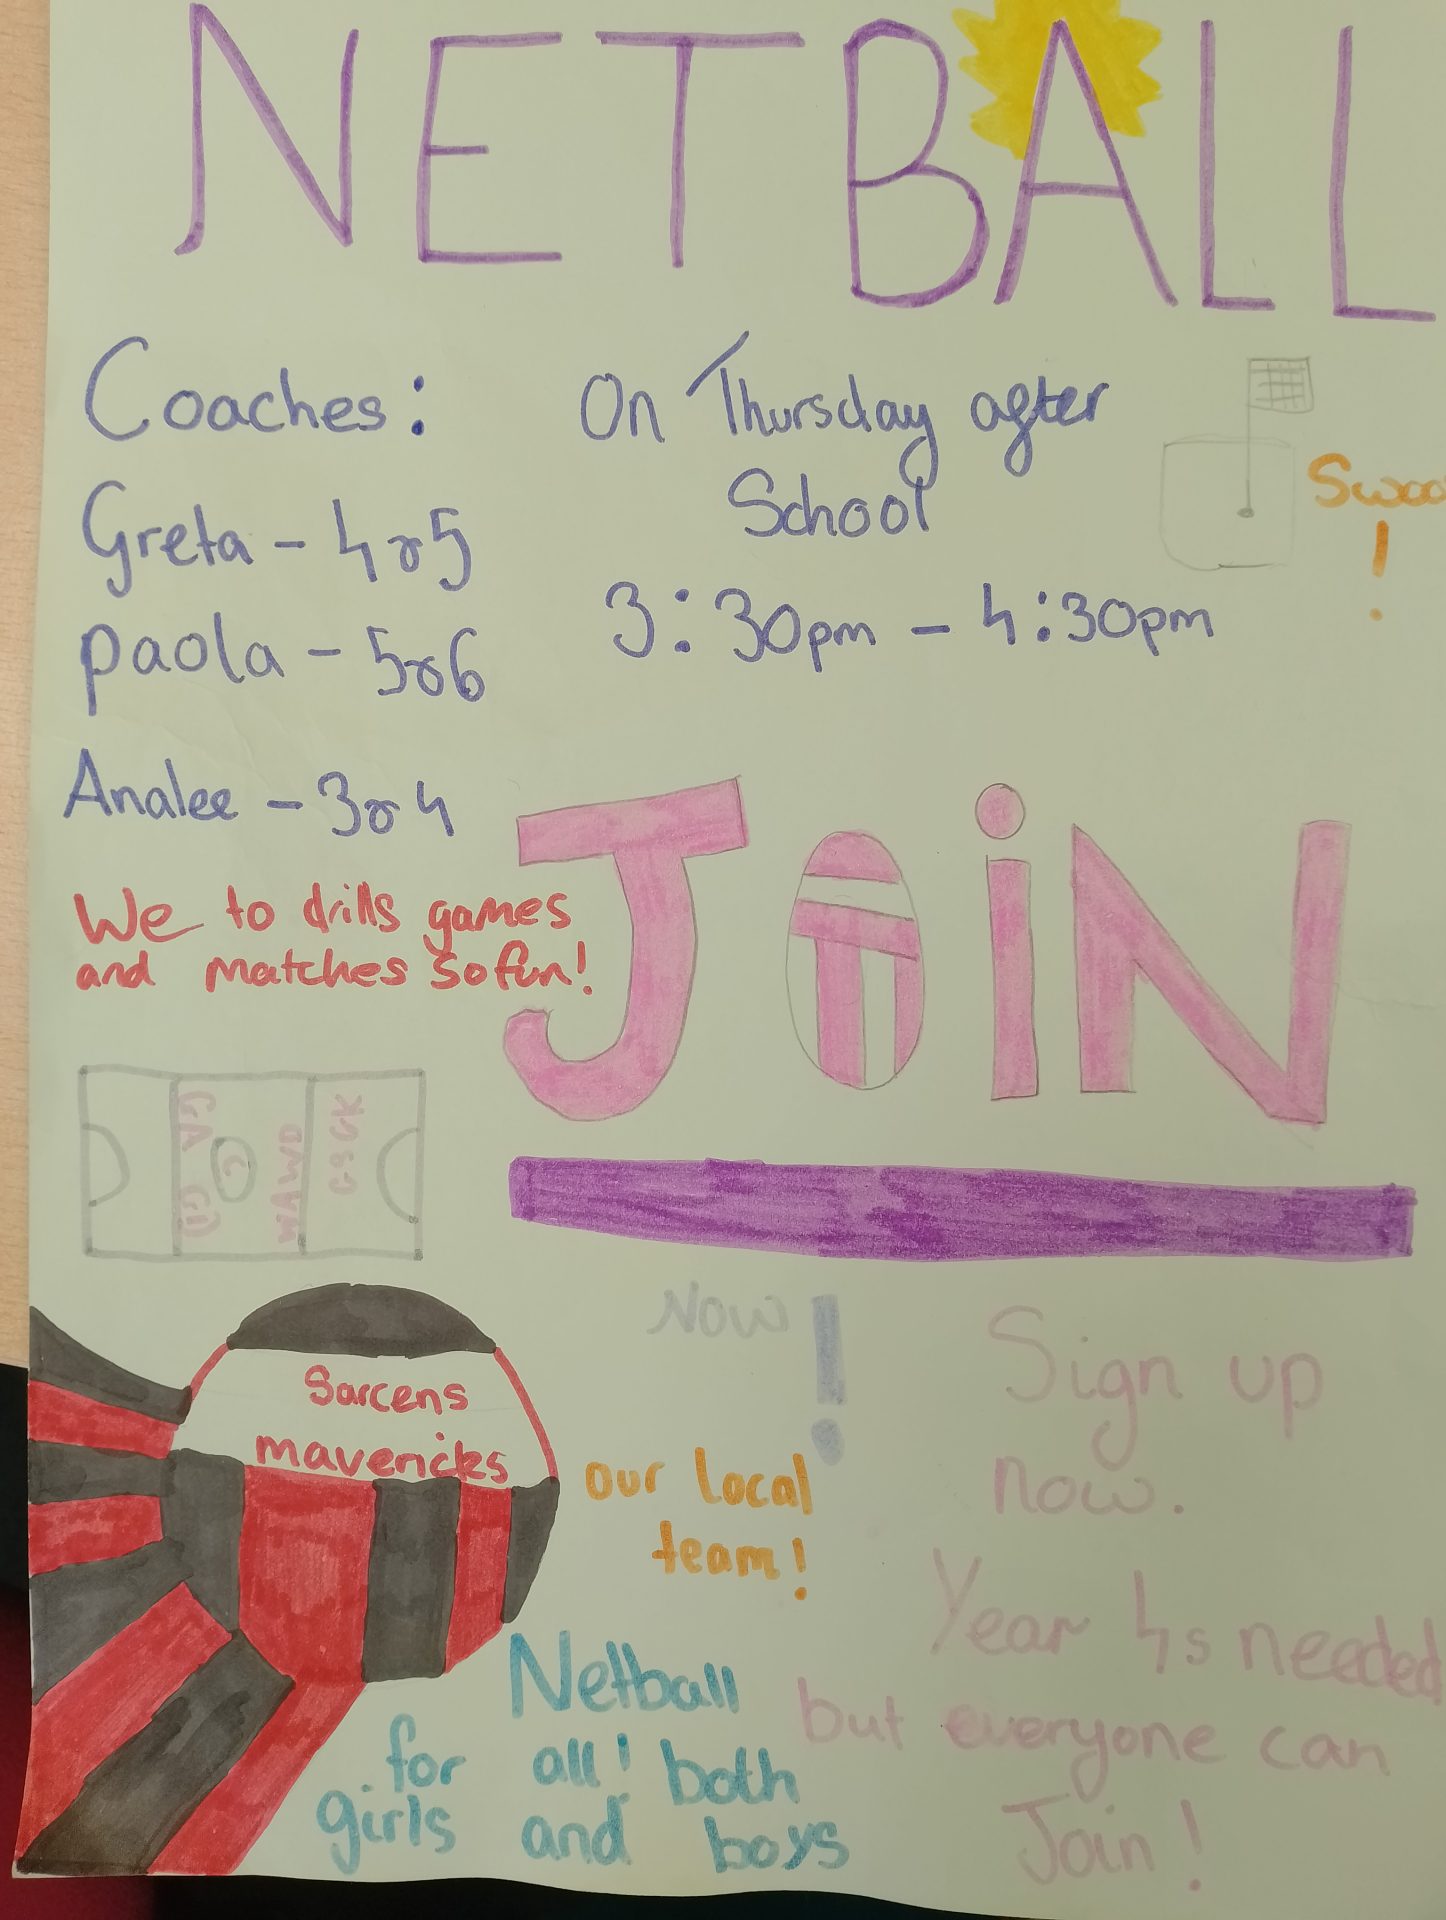 NETBALL
Coaches:
Greta - 4 or 5
paola - 5 or 6
Analee - 3 or 4
On Thursday after
School
3:30pm - 4:30pm
!
We to drills games
and matches so fun!
JOiN
GA GD
C
WA WD
GS GK
Now!
Sarcens
mavericks
our local
team!
Sign up
now.
Year 4s needed
but everyone can
Join!
Netball
for all! both
girls and boys